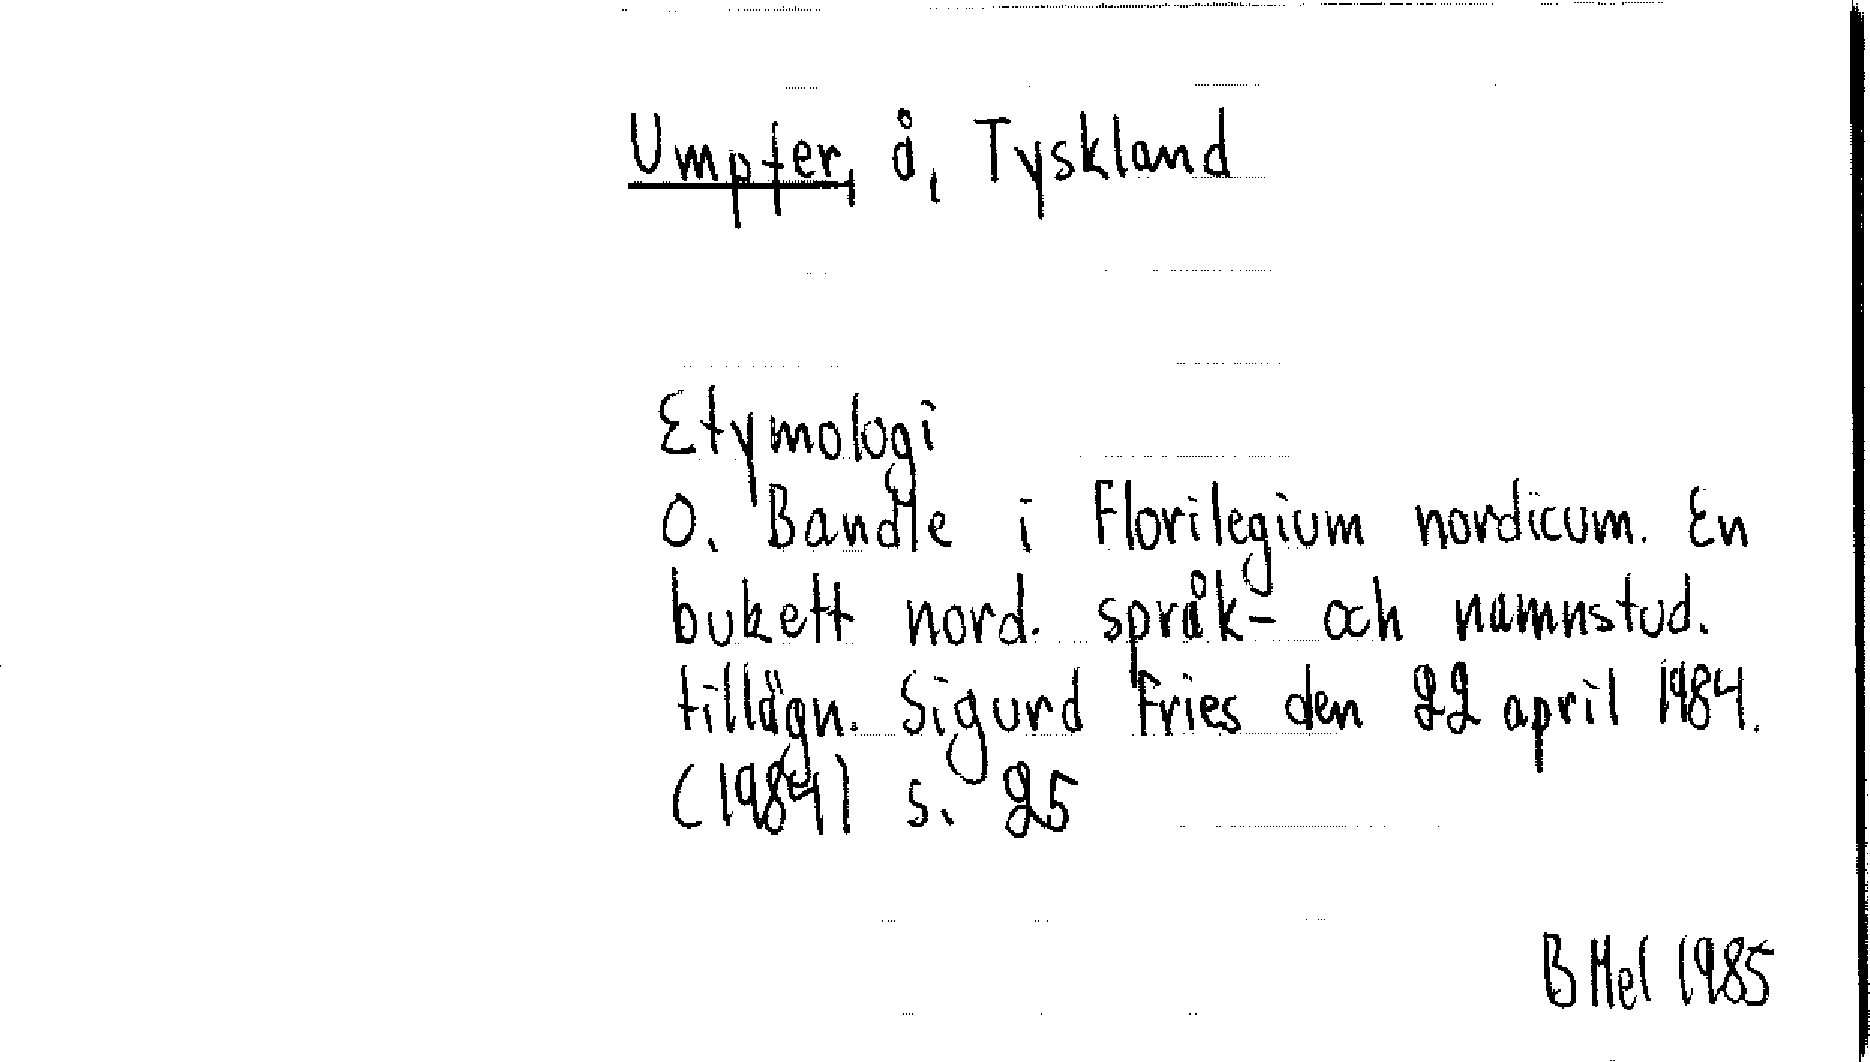 Umpfer, å, Tyskland
Etymologi
O. Bandle i Florilegium nordicum. En
bukett nord. språk- och namnstud.
tillägn. Sigurd Fries den 22 april 1984.
(1984) s. 25
B Hel 1985